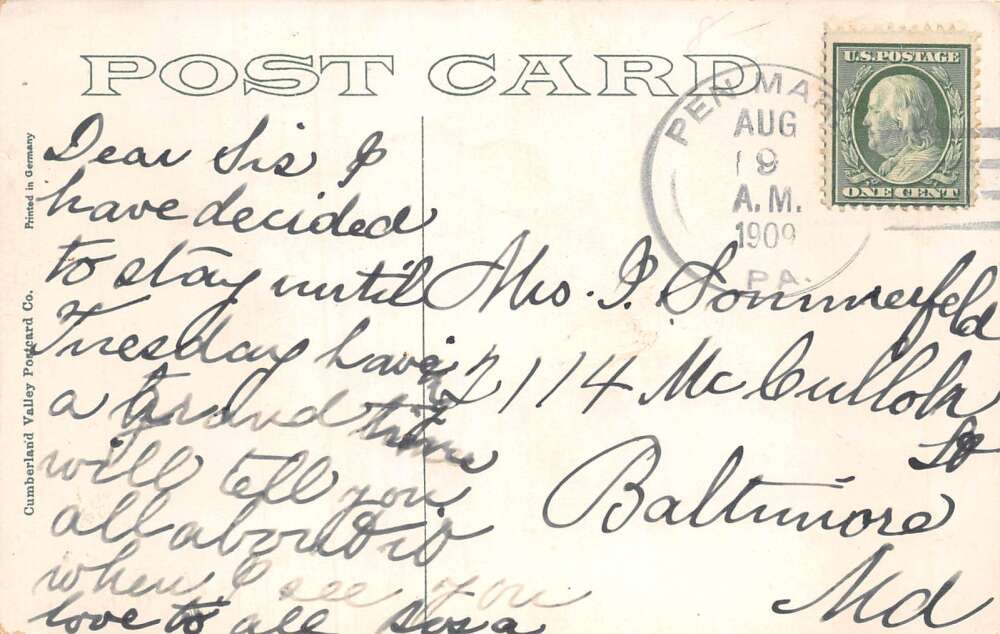 POST CARD
Dear Sis I
have decided
to stay until
Tuesday having
a grand time
will tell you
all about it
when I see you
love to all Rosa
Mrs. I. Sommerfeld
2114 McCulloh
St
Baltimore
Md
PEN MAR
AUG
9
A.M.
1909
PA.
U.S. POSTAGE
ONE CENT
Printed in Germany
Cumberland Valley Postcard Co.